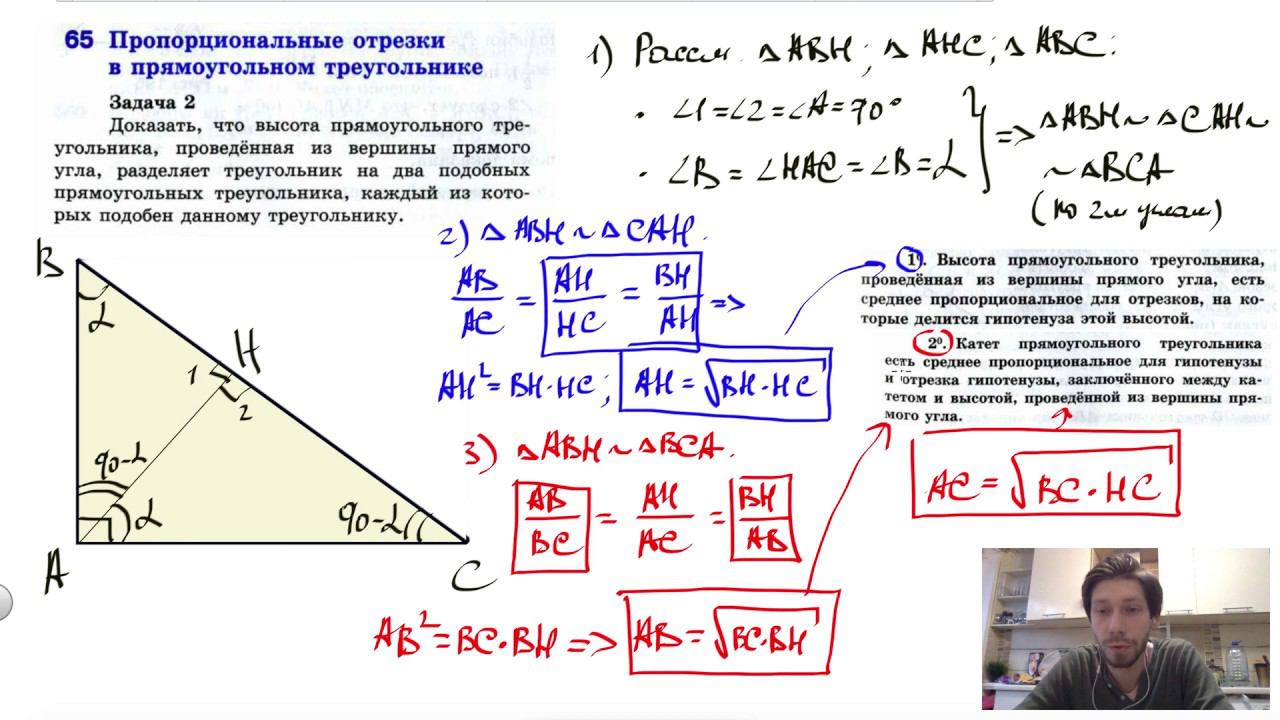 65 Пропорциональные отрезки
в прямоугольном треугольнике
Задача 2
Доказать, что высота прямоугольного тре-
угольника, проведённая из вершины прямого
угла, разделяет треугольник на два подобных
прямоугольных треугольника, каждый из кото-
рых подобен данному треугольнику.
1) Рассм. △ABH; △AHC; △ABC:
• ∠1=∠2=∠A=90°
• ∠B = ∠HAC = ∠B = α
=> △ABH ~ △CAH ~
~ △BCA
(по 2м углам)
B
α
H
1
2
90-α
α
90-α
A
C
2) △ABH ~ △CAH.
AB/AC = AH/HC = BH/AH =>
AH² = BH·HC; AH = √BH·HC
3) △ABH ~ △BCA.
AB/BC = AH/AC = BH/AB
AB² = BC·BH => AB = √BC·BH
1⁰. Высота прямоугольного треугольника,
проведённая из вершины прямого угла, есть
среднее пропорциональное для отрезков, на ко-
торые делится гипотенуза этой высотой.
2⁰. Катет прямоугольного треугольника
есть среднее пропорциональное для гипотенузы
и отрезка гипотенузы, заключённого между ка-
тетом и высотой, проведённой из вершины пря-
мого угла.
AC = √BC·HC